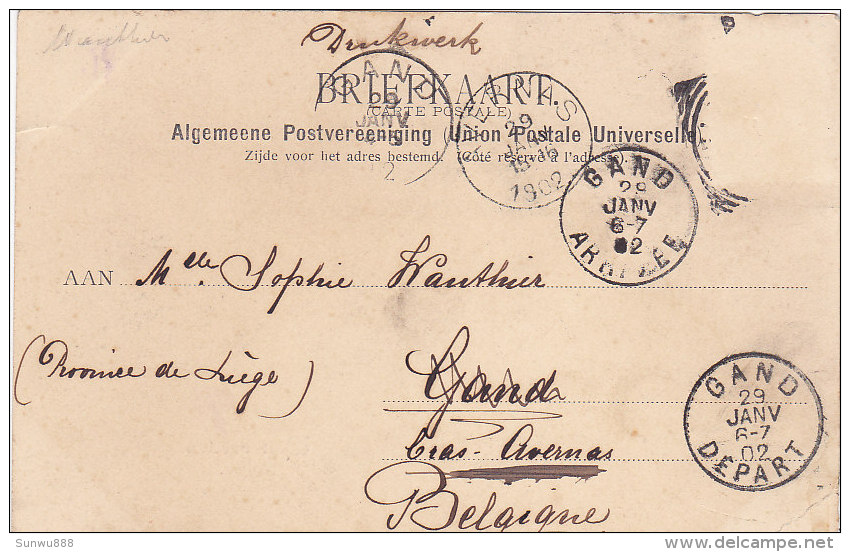 Wauthier
Drukwerk
BRIEFKAART.
(CARTE POSTALE)
Algemeene Postvereeniging (Union Postale Universelle)
Zijde voor het adres bestemd. (Côté réservé à l'adresse).
GAND
29
JANV
2
AVERNAS
29
JANV
1902
GAND
29
JANV
6-7
02
ARRIVEE
AAN Melle. Sophie Wauthier
(Province de Liège)
Gand
Cras-Avernas
Belgique
GAND
29
JANV
6-7
02
DEPART
Sunwu888
delcampe.net